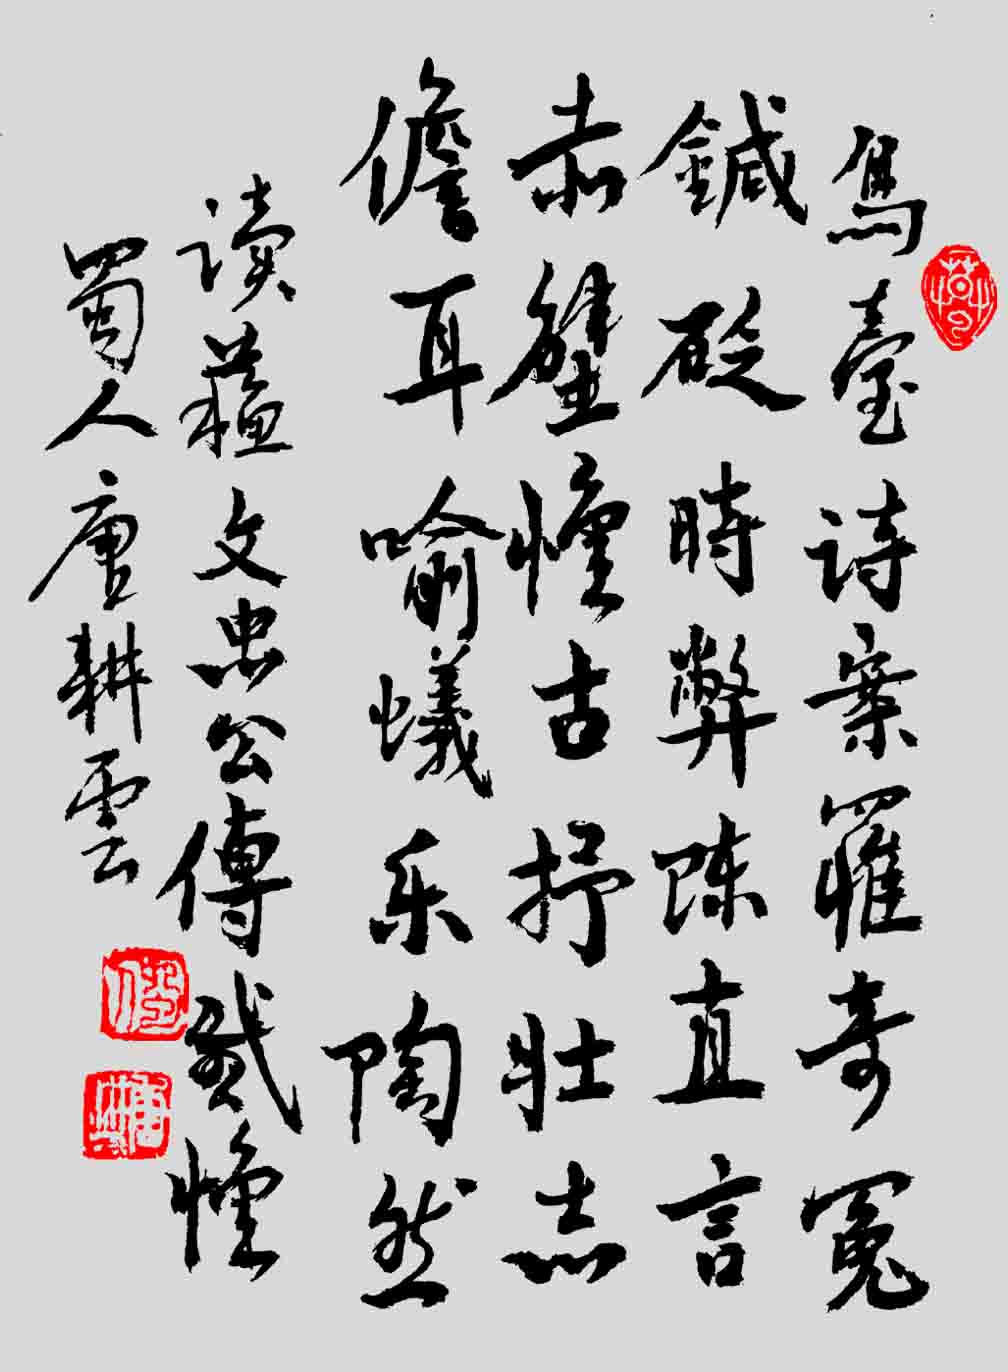 烏臺诗案罹奇冤
鍼砭時弊陈直言
赤壁懷古抒壮志
儋耳喻蟻乐陶然
读蘓文忠公傳感懷
蜀人唐耕雲